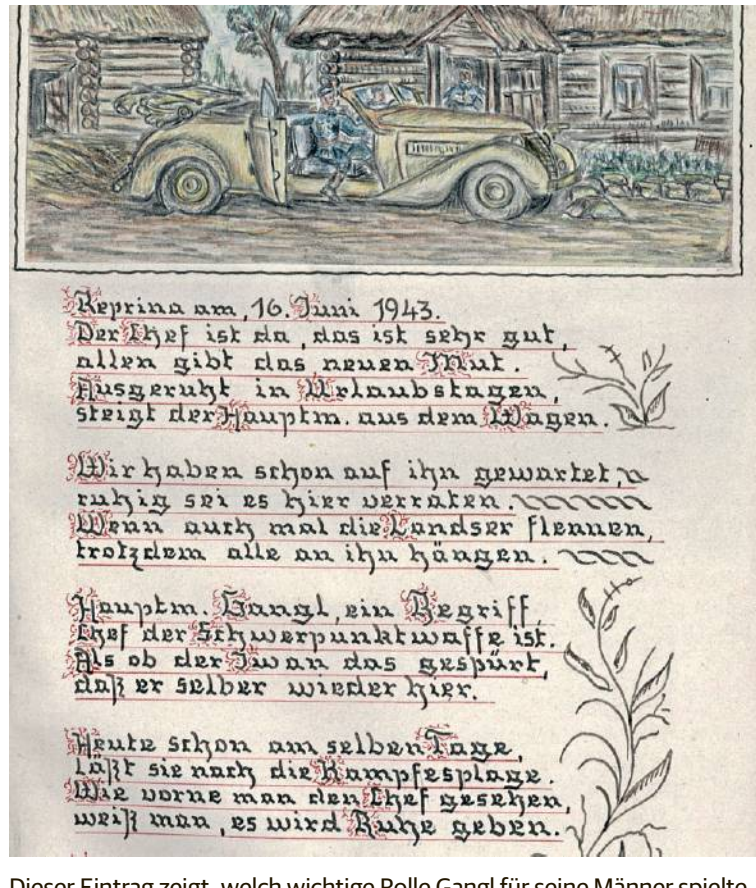 Reprina am, 16. Juni 1943.
Der Chef ist da, das ist sehr gut,
allen gibt das neuen Mut.
Ausgeruht in Urlaubstagen,
steigt der Hauptm. aus dem Wagen.
Wir haben schon auf ihn gewartet,
ruhig sei es hier verraten.
Wenn auch mal die Landser flennen,
trotzdem alle an ihn hängen.
Hauptm. Gangl, ein Begriff,
Chef der Schwerpunktwaffe ist.
Als ob der Iwan das gespürt,
daß er selber wieder hier.
Heute schon am selben Tage,
läßt sie nach die Kampfesplage.
Wie vorne man den Chef gesehen,
weiß man, es wird Ruhe geben.
Dieser Eintrag zeigt, welch wichtige Rolle Gangl für seine Männer spielte